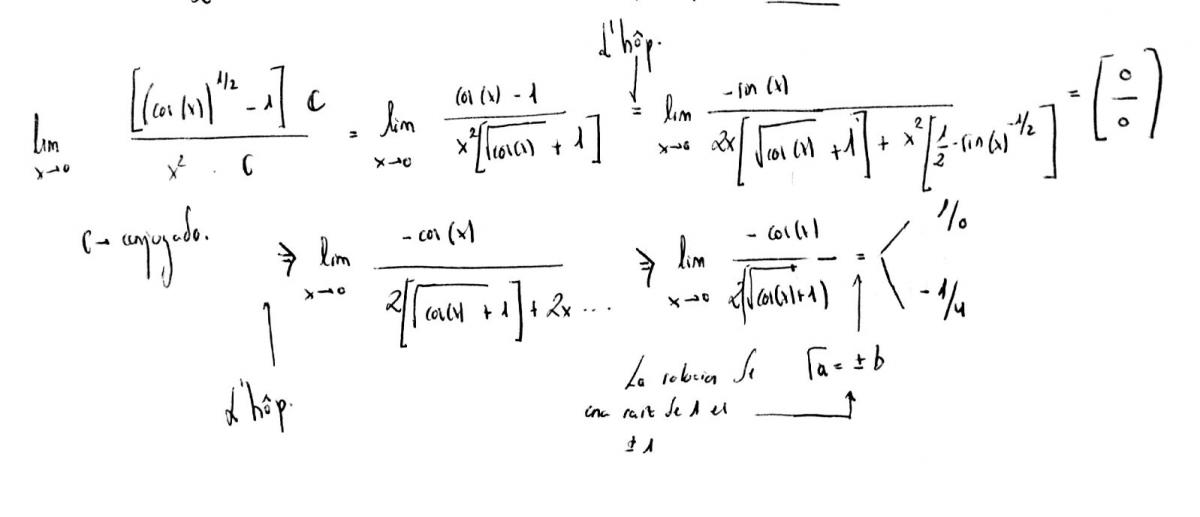 L'hôp.
lim x→0 [(cos(x))^1/2 - 1] C / x² . C = lim x→0 cos(x) - 1 / x²[√cos(x) + 1] = lim x→0 -sin(x) / 2x[√cos(x) + 1] + x²[1/2 · sin(x)^-1/2] = [0/0]
C → conjugado.
⇒ lim x→0 -cos(x) / 2[√cos(x) + 1] + 2x ... ⇒ lim x→0 -cos(x) / 2(√cos(x) + 1) = 1/0
-1/4
L'hôp.
La solucion de √a = ± b
una raiz de 1 es
± 1